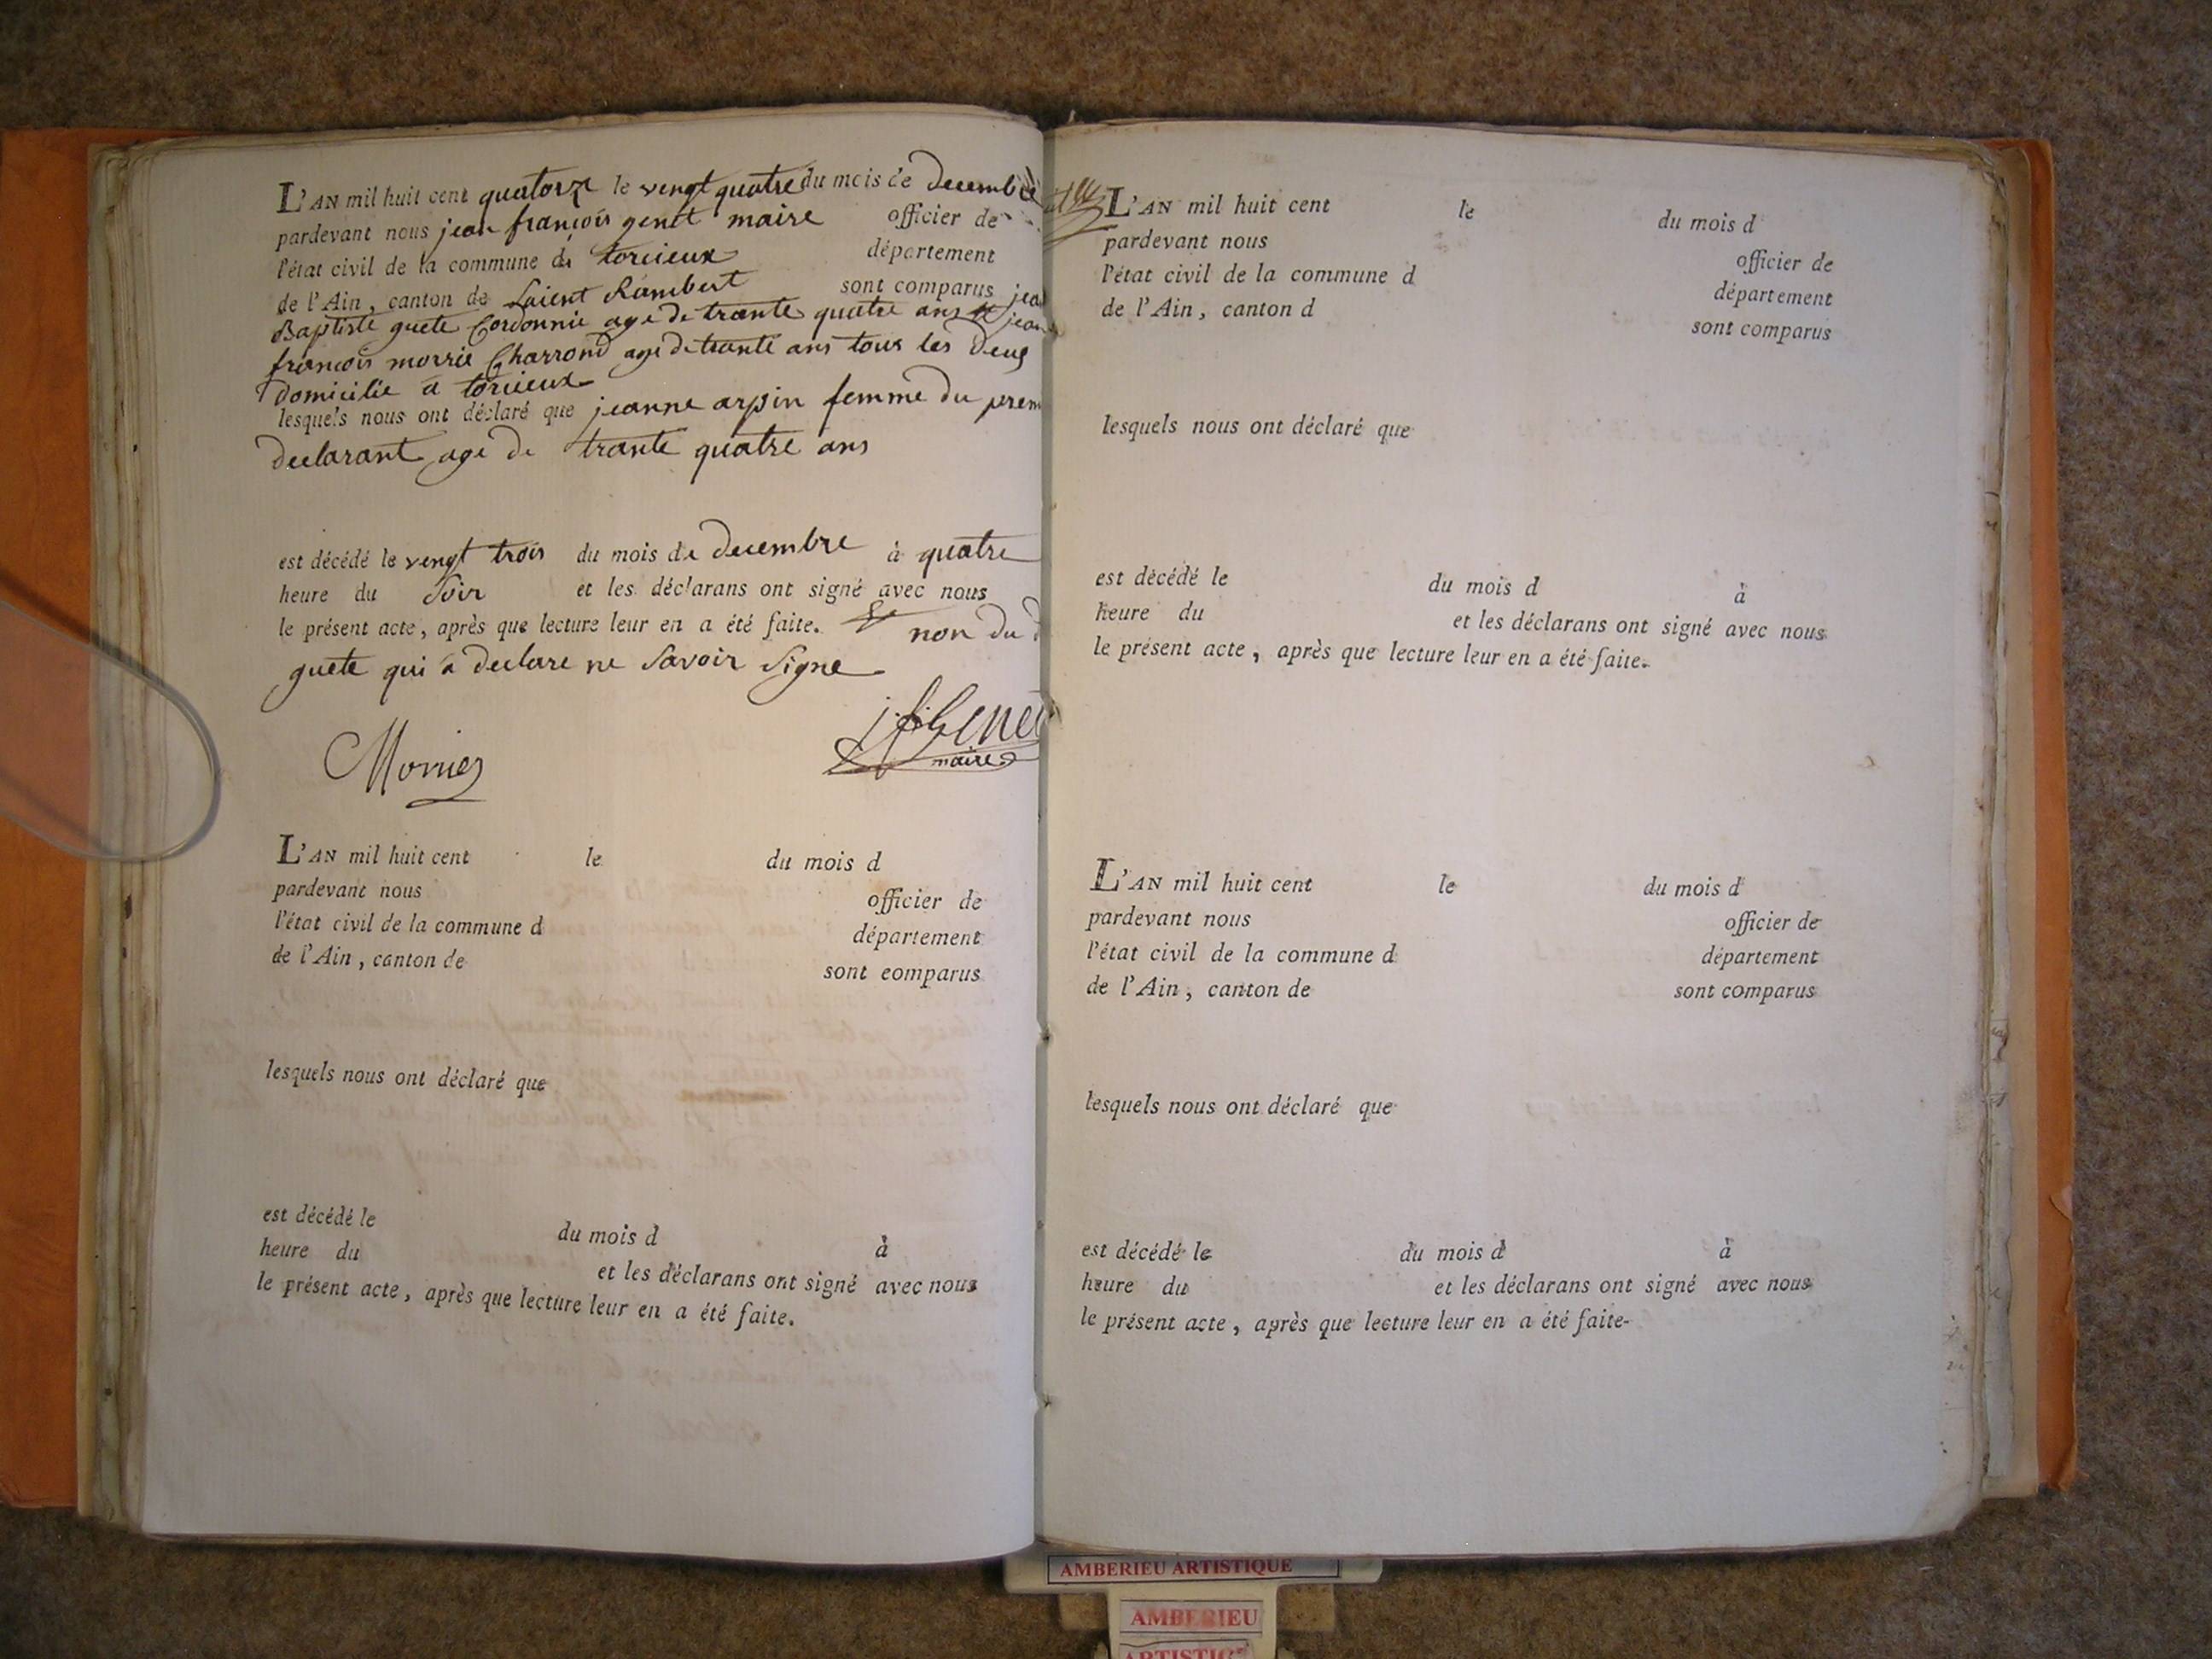 L'AN mil huit cent quatorze le vengt quatre du mois de decembre
pardevant nous jean françois genet maire officier de
l'état civil de la commune de torcieux département
de l'Ain, canton de Saient Rambert sont comparus jean
Baptiste guete Cordonnie age de trante quatre ans et jean
françois morrie Charrond age de trante ans tous les deus
domicilie a torcieux
lesquels nous ont déclaré que jeanne arpin femme du prem
declarant age de trante quatre ans
est décédé le vengt trois du mois de decembre à quatre
heure du soir et les déclarans ont signé avec nous
le présent acte, après que lecture leur en a été faite. non du d
guete qui a declare ne savoir signe
Morrier
j f Genet
maire
L'AN mil huit cent le du mois d
pardevant nous officier de
l'état civil de la commune d département
de l'Ain, canton de sont eomparus
lesquels nous ont déclaré que
est décédé le du mois d à
heure du et les déclarans ont signé avec nous
le présent acte, après que lecture leur en a été faite.
L'AN mil huit cent le du mois d
pardevant nous officier de
l'état civil de la commune d département
de l'Ain, canton d sont comparus
lesquels nous ont déclaré que
est décédé le du mois d à
heure du et les déclarans ont signé avec nous
le présent acte, après que lecture leur en a été faite.
L'AN mil huit cent le du mois d
pardevant nous officier de
l'état civil de la commune d département
de l'Ain, canton de sont comparus
lesquels nous ont déclaré que
est décédé le du mois d à
heure du et les déclarans ont signé avec nous
le présent acte, après que lecture leur en a été faite.
AMBERIEU ARTISTIQUE
AMBERIEU